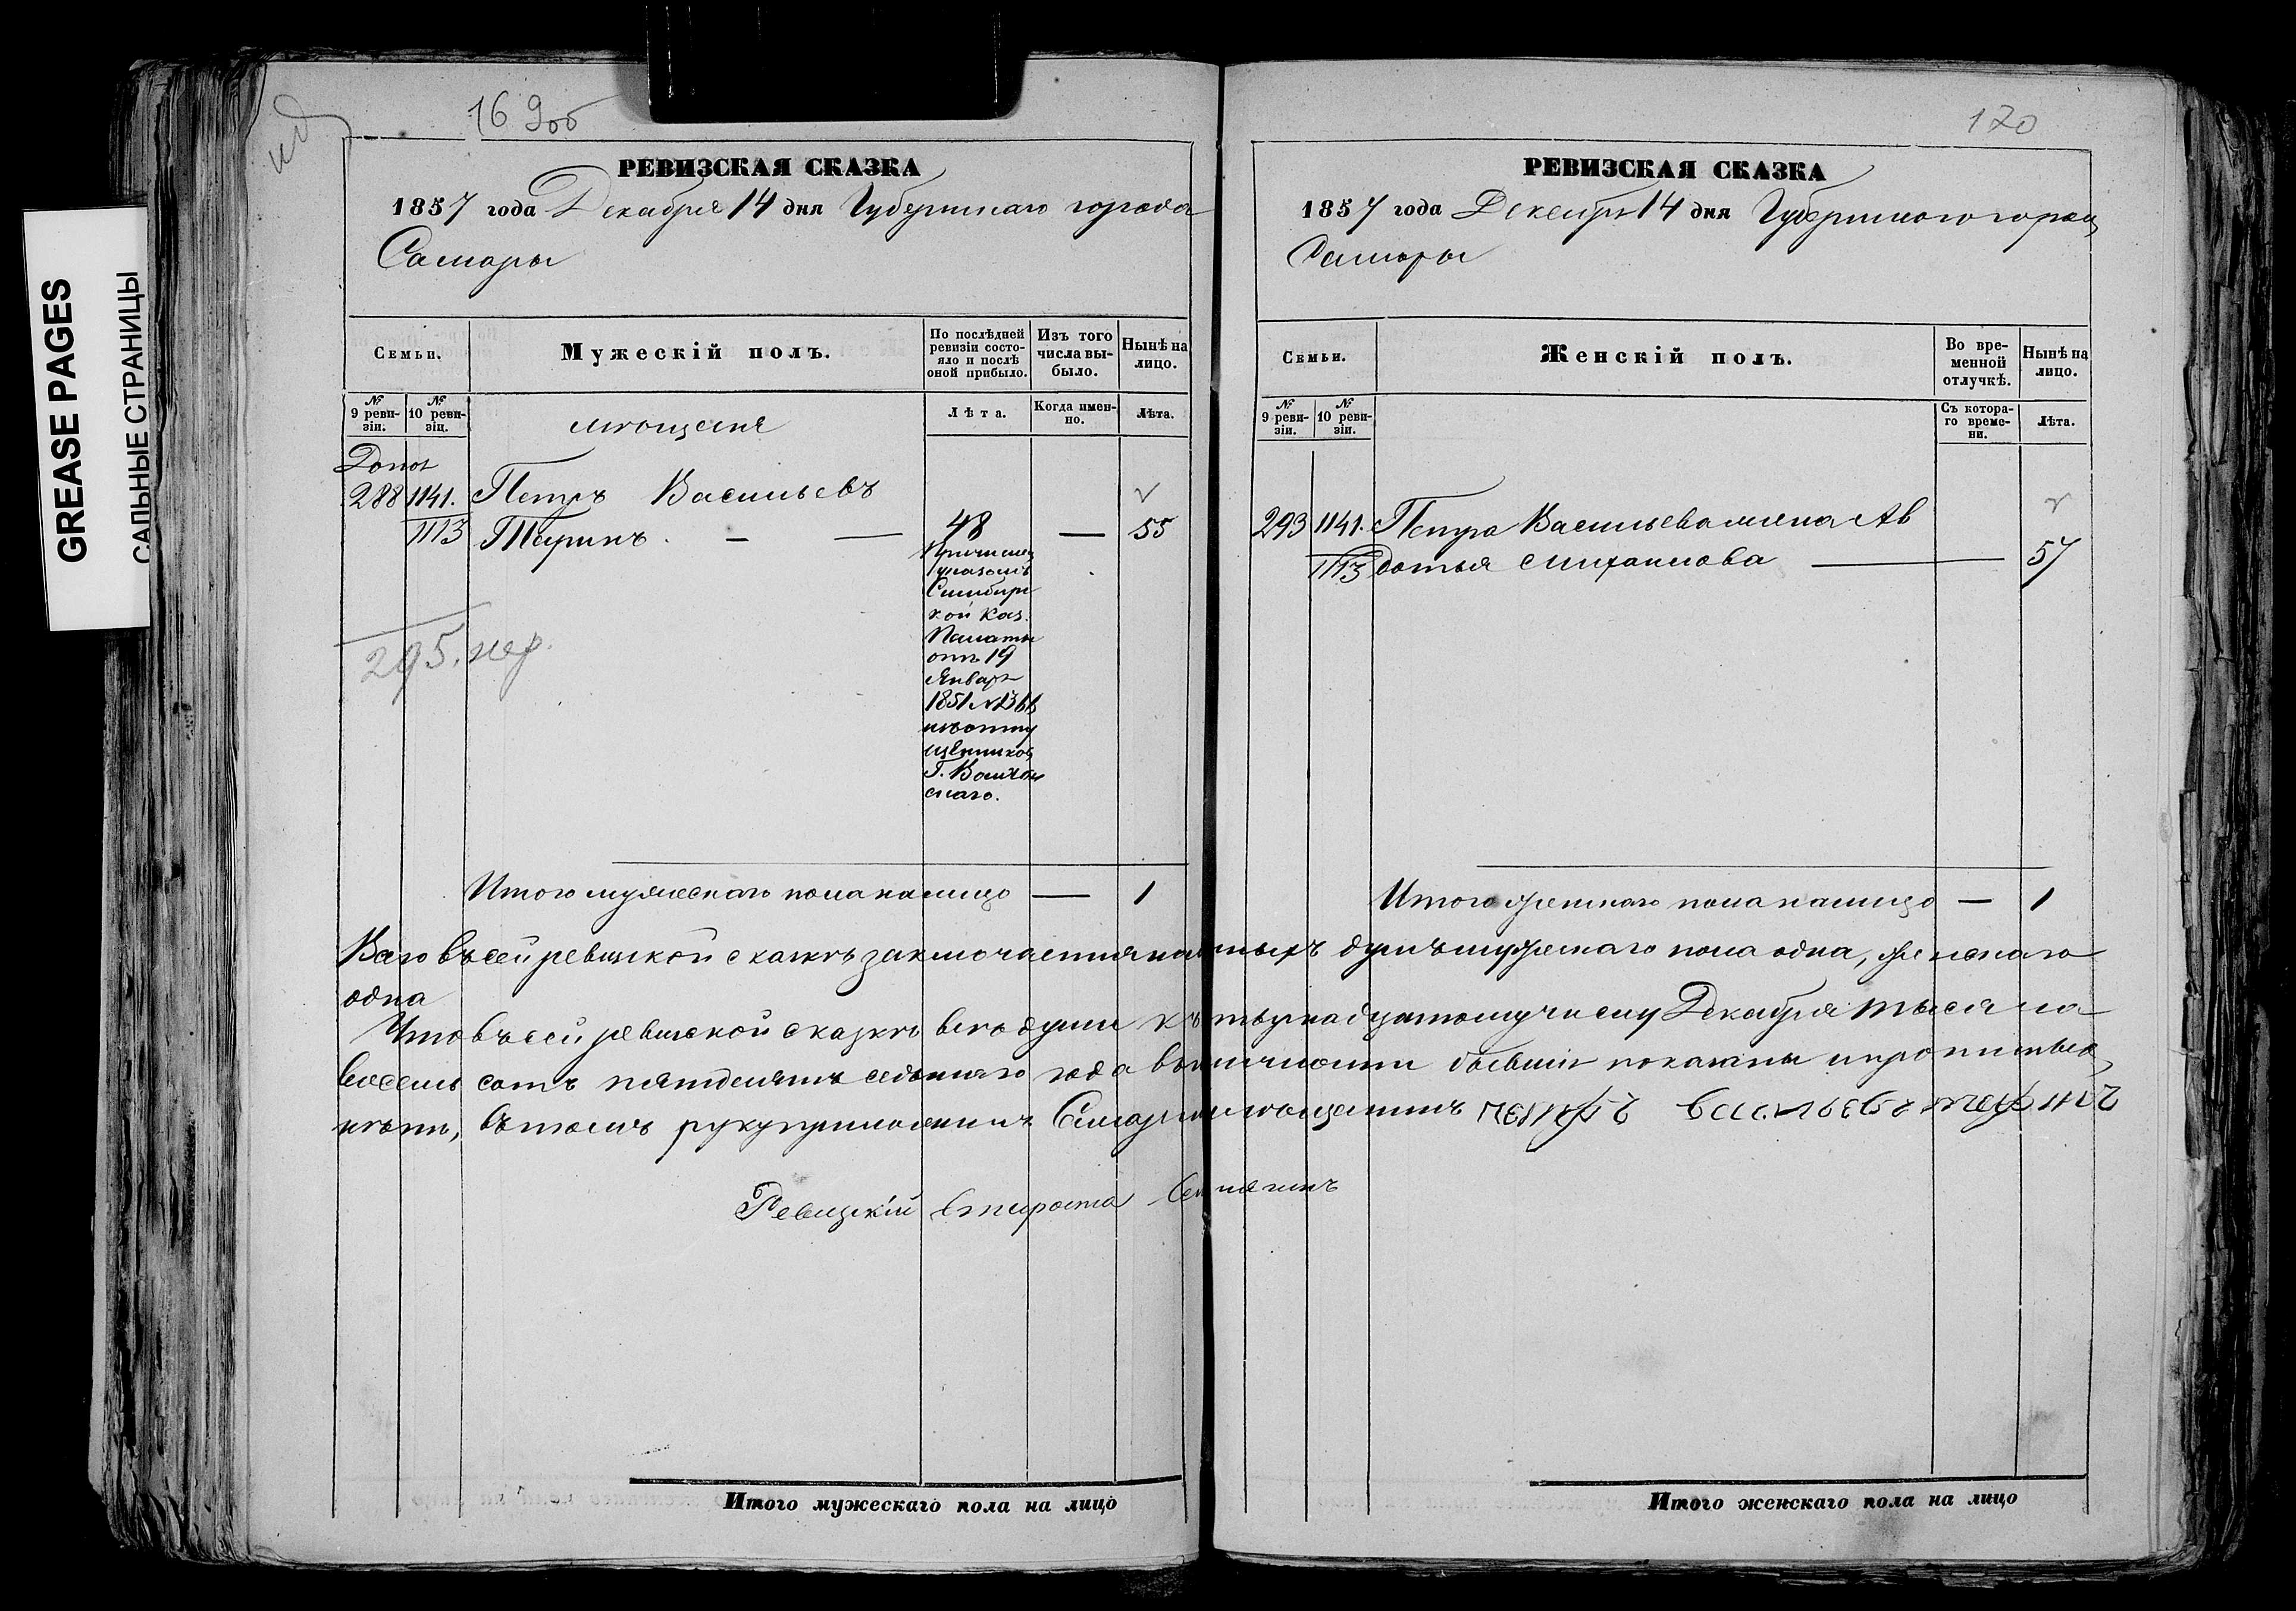 GREASE PAGES
САЛЬНЫЕ СТРАНИЦЫ
169об
РЕВИЗСКАЯ СКАЗКА
1857 года Декабря 14 дня Губернскаго города
Самары
Семьи.
Мужескій полъ.
По послѣдней ревизіи состояло и послѣ оной прибыло.
Изъ того числа выбыло.
Нынѣ на лицо.
№ 9 ревизіи.
№ 10 ревизіи.
мѣщане
Лѣта.
Когда именно.
Лѣта.
Допол
288 1141. Петръ Васильевъ
1113 48 — 55
Причислен
указомъ
Симбирс
кой Каз.
Палаты
отъ 19
Январ
1851
изъ отпу
щенников
Г.
скаго.
295. пер.
Итого мужескаго пола на лицо — 1
170
РЕВИЗСКАЯ СКАЗКА
1857 года Декабря 14 дня Губернскаго города
Самары
Семьи.
Женскій полъ.
Во временной отлучкѣ.
Нынѣ на лицо.
№ 9 ревизіи.
№ 10 ревизіи.
Съ котораго времени.
Лѣта.
293 1141. Петра Васильева жена Ав
1113 дотья Михаилова — 57
Итого женскаго пола на лицо — 1
Всего въ сей ревизской сказкѣ заключается наличныхъ душъ мужескаго пола одна, женскаго
одна
Что въ сей ревизской сказкѣ всѣ души къ Декабря тысяча
восемь сотъ пятдесятъ седьмаго года въ наличности бывшія показаны и прописныхъ
нѣтъ, въ томъ руку приложилъ Самарскій мѣщанинъ
Ревизскій Староста
Итого мужескаго пола на лицо
Итого женскаго пола на лицо